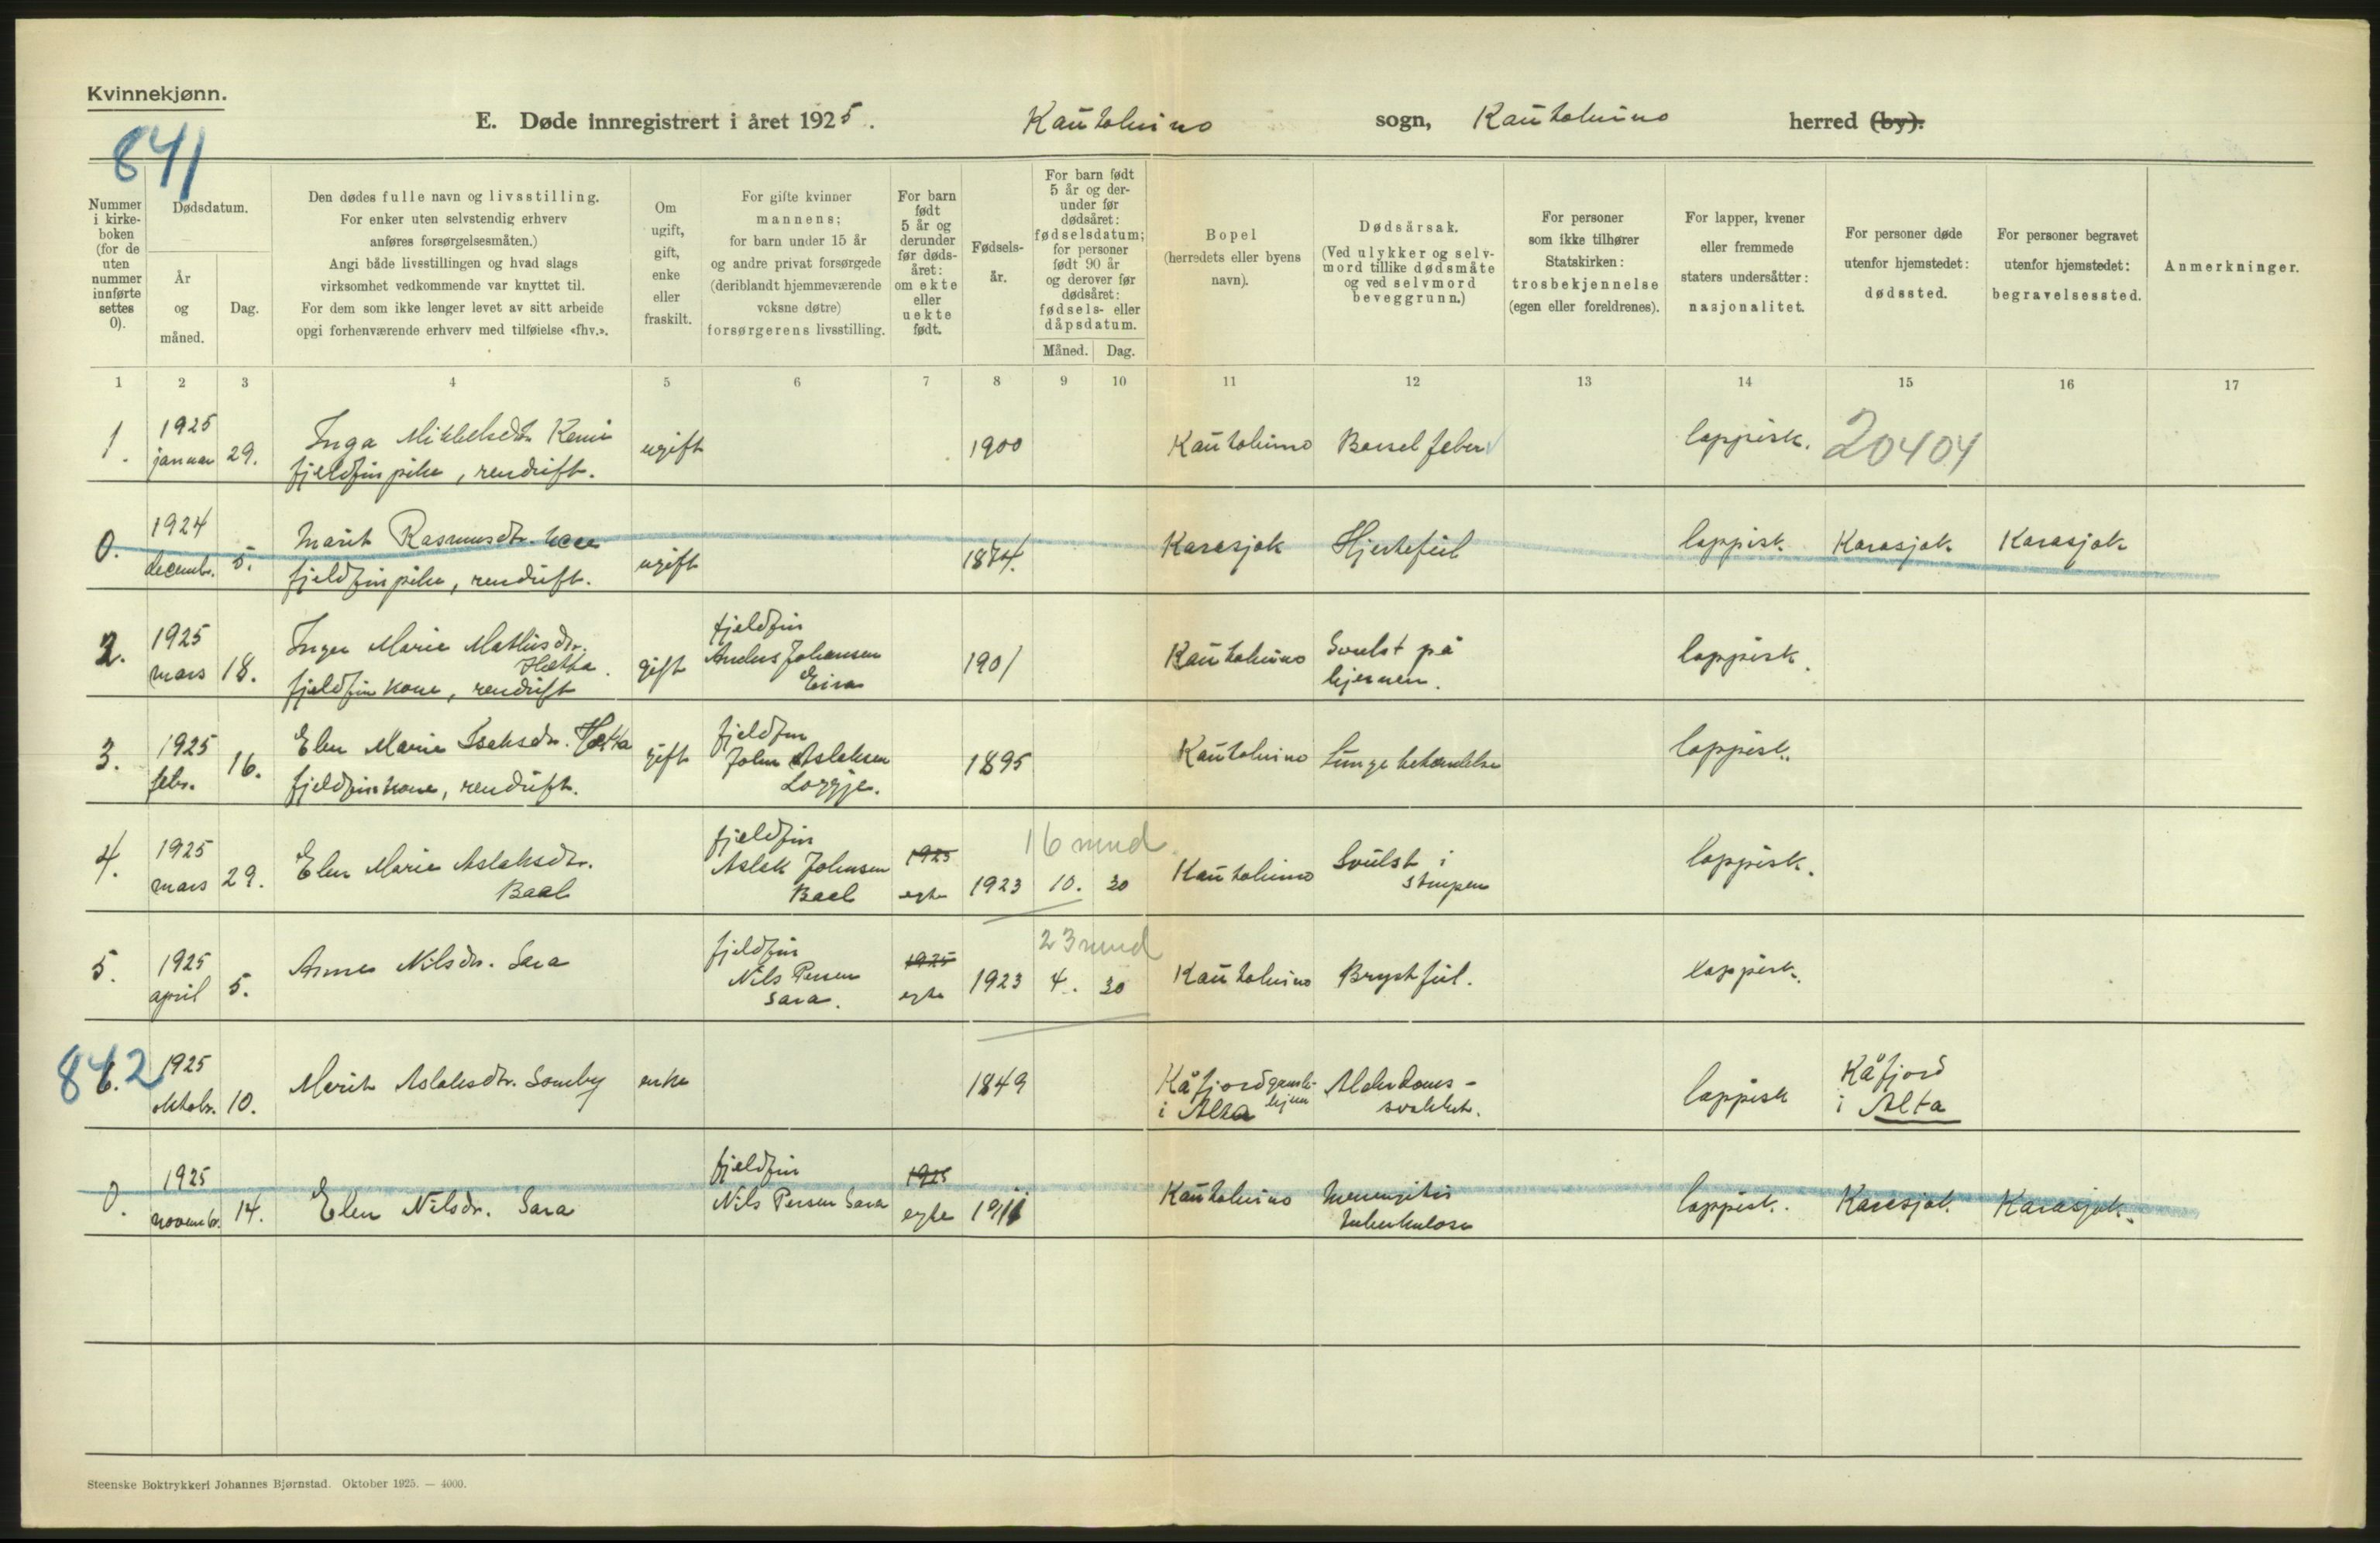 Kvinnekjønn.
841
E. Døde innregistrert i året 1925. Kautokeino sogn, Kautokeino herred (by).
Nummer i kirke-boken (for de uten nummer innførte settes 0).
Dødsdatum.
År og måned.
Dag.
Den dødes fulle navn og livsstilling.
For enker uten selvstendig erhverv
anføres forsørgelsesmåten.)
Angi både livsstillingen og hvad slags
virksomhet vedkommende var knyttet til.
For dem som ikke lenger levet av sitt arbeide
opgi forhenværende erhverv med tilføielse «fhv.».
Om ugift, gift, enke eller fraskilt.
For gifte kvinner
mannens;
for barn under 15 år
og andre privat forsørgede
(deriblandt hjemmeværende
voksne døtre)
forsørgerens livsstilling.
For barn født 5 år og derunder før døds-året: om ekte eller uekte født.
Fødsels-år.
For barn født 5 år og der-under før dødsåret: fødselsdatum; for personer født 90 år og derover før dødsåret: fødsels- eller dåpsdatum.
Måned. Dag.
Bopel
(herredets eller byens
navn).
Dødsårsak.
(Ved ulykker og selv-
mord tillike dødsmåte
og ved selvmord
beveggrunn.)
For personer
som ikke tilhører
Statskirken:
trosbekjennelse
(egen eller foreldrenes).
For lapper, kvener
eller fremmede
staters undersåtter:
nasjonalitet.
For personer døde
utenfor hjemstedet:
dødssted.
For personer begravet
utenfor hjemstedet:
begravelsessted.
Anmerkninger.
1 2 3 4 5 6 7 8 9 10 11 12 13 14 15 16 17
1. 1925 januar 29. Inga Mikkelsdtr. Kemi fjeldfinpike, rendrift. ugift 1900 Kautokeino Barselfeber lappisk. 20404
0. 1924 decembr. 5. Marit Rasmusdtr. fjeldfinpike, rendrift. ugift 1874. Karasjok Hjertefeil lappisk. Karasjok. Karasjok
2. 1925 mars 18. Inger Marie Mathisdtr. Hætta. fjeldfinkone, rendrift gift fjeldfin Anders Johansen Eira 1901 Kautokeino Svulst på hjernen. lappisk.
3. 1925 febr. 16. Elen Marie Isaksdtr. Hætta fjeldfinkone, rendrift. gift fjeldfin John Aslaksen Loggje. 1895 Kautokeino Lungebetændelse lappisk.
4. 1925 mars 29. Elen Marie Aslaksdtr. Baal fjeldfin Aslak Johnsen Baal 1925 egte 1923 10. 30 16 mnd. Kautokeino Svulst i strupen lappisk.
5. 1925 april 5. Anne Nilsdtr. Sara fjeldfin Nils Persen Sara. 1925 egte 1923 4. 30 23 mnd Kautokeino Brystfeil. lappisk.
842
6. 1925 oktobr. 10. Marit Aslaksdtr. Somby enke 1849 Kåfjord gamle-hjem i Alta Alderdoms-svakhet. lappisk Kåfjord i Alta
0. 1925 novembr. 14. Elen Nilsdtr. Sara fjeldfin Nils Persen Sara 1925 egte 1911 Kautokeino Meningitis tuberkulose lappisk. Karasjok. Karasjok.
Steenske Boktrykkeri Johannes Bjørnstad. Oktober 1925. — 4000.